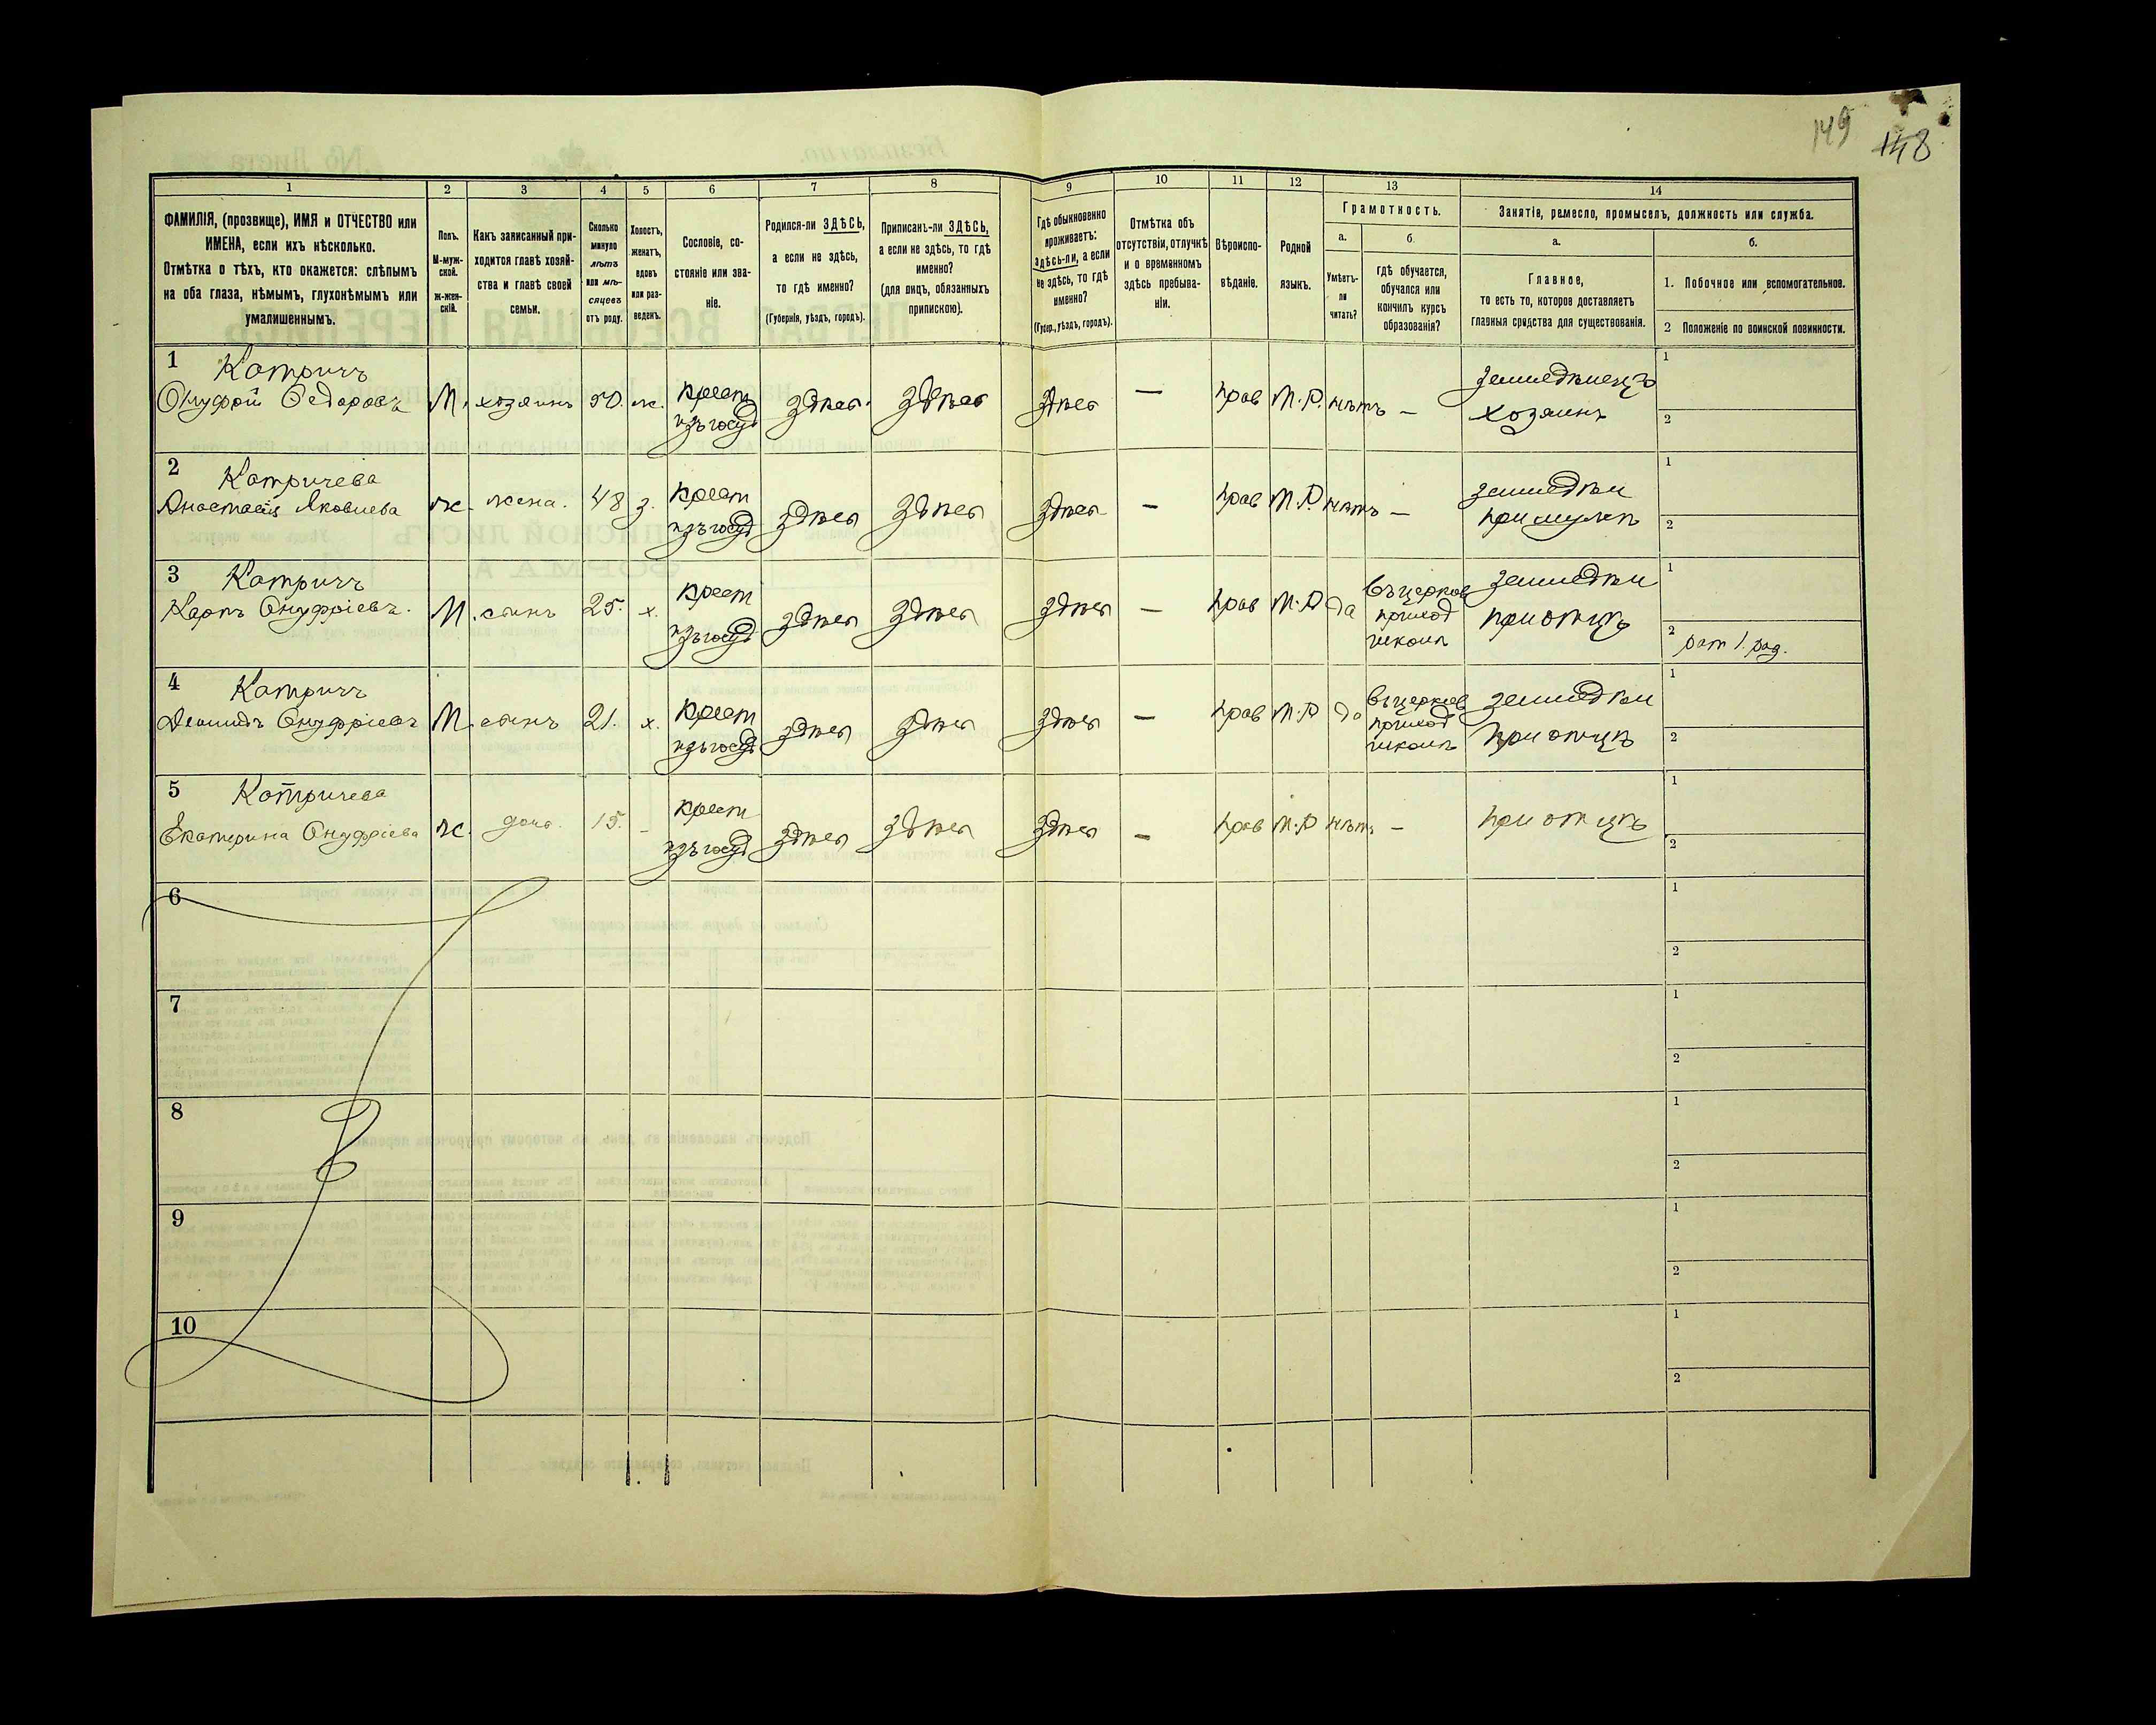 149 148
1 2 3 4 5 6 7 8 9 10 11 12 13 14
ФАМИЛІЯ, (прозвище), ИМЯ и ОТЧЕСТВО или
ИМЕНА, если ихъ нѣсколько.
Отмѣтка о тѣхъ, кто окажется: слѣпымъ
на оба глаза, нѣмымъ, глухонѣмымъ или
умалишеннымъ.
Полъ.
М-муж-
ской.
ж-жен-
скій.
Какъ записанный при-
ходится главѣ хозяй-
ства и главѣ своей
семьи.
Сколько
минуло
лѣтъ
или мѣ-
сяцевъ
отъ роду.
Холостъ,
женатъ,
вдовъ
или раз-
веденъ.
Сословіе, со-
стояніе или зва-
ніе.
Родился-ли ЗДѢСЬ,
а если не здѣсь,
то гдѣ именно?
(Губернія, уѣздъ, городъ).
Приписанъ-ли ЗДѢСЬ,
а если не здѣсь, то гдѣ
именно?
(для лицъ, обязанныхъ
припискою).
Гдѣ обыкновенно
проживаетъ:
здѣсь-ли, а если
не здѣсь, то гдѣ
именно?
(Губер., уѣздъ, городъ).
Отмѣтка объ
отсутствіи, отлучкѣ
и о временномъ
здѣсь пребыва-
ніи.
Вѣроиспо-
вѣданіе.
Родной
языкъ.
Грамотность.
а.
Умѣетъ-
ли
читать?
б.
гдѣ обучается,
обучался или
кончилъ курсъ
образованія?
Занятія, ремесло, промыселъ, должность или служба.
а.
Главное,
то есть то, которое доставляетъ
главныя средства для существованія.
б.
1. Побочное или вспомогательное.
2 Положеніе по воинской повинности.
1 Катричъ земледѣлецъ 1
Онуфрій Ѳедоровъ М. хозяинъ 50. ж. крест здѣсь здѣсь здѣсь — прав М.Р. нѣтъ — хозяинъ
изъ госуд 2
2 Катричева земледѣл 1
Анастасія Яковлева ж. жена. 48 з. крест здѣсь здѣсь здѣсь — прав М.Р. нѣтъ — при мужѣ
изъ госуд 2
3 Катричъ въ церков земледѣл 1
Карпъ Онуфріевъ. М. сынъ 25. х. крест здѣсь здѣсь здѣсь — прав М.Р да приход при отцѣ
изъ госуд школѣ 2 рат 1. раз.
4 Катричъ въ церков земледѣл 1
Демидъ Онуфріевъ М. сынъ 21. х. крест здѣсь здѣсь здѣсь — прав М.Р да приход при отцѣ
изъ госуд школѣ 2
5 Катричева 1
Екатерина Онуфріева ж. дочь. 15. – крест здѣсь здѣсь здѣсь – прав М.Р нѣтъ — при отцѣ
изъ госуд 2
6 1
2
7 1
2
8 1
2
9 1
2
10 1
2